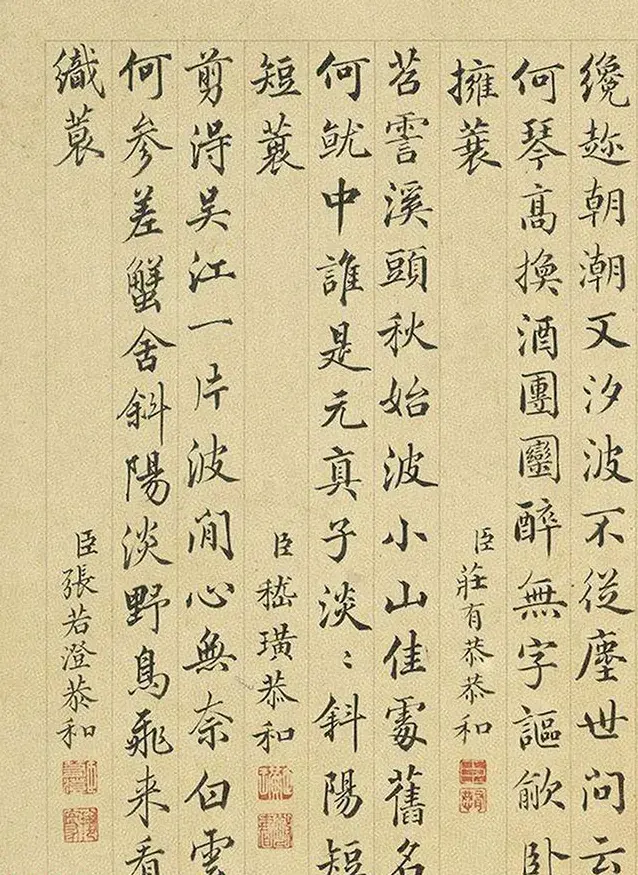 纔趂朝潮又汐波不從塵世问云
何琴高換酒團圞醉無字謳歈卧
擁蓑
臣莊有恭恭和
苕霅溪頭秋始波小山佳處舊名
何就中誰是元真子淡〻斜陽短
短蓑
臣嵇璜恭和
剪得吴江一片波閒心無奈白雲
何參差蟹舍斜陽淡野鳥飛来看
織蓑
臣張若澄恭和